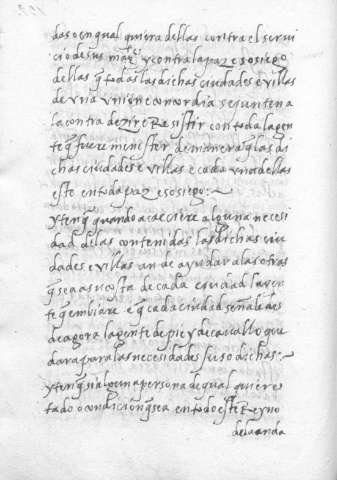 das o en qual quiera dellas contra el servi
cio de sus mag.t y contra la paz e sosiego
dellas q todas las dichas ciudades e villas
de vna vnion e concordia se junten a
la contradezir e Resistir con toda la gen
te q fuere menster de manera q las di
chas ciudades e villas e cada vna dellas
este en toda paz e sosiego.
yten q quando acaeciere alguna necesi
dad de las contenidas las dichas ciu
dades e villas an de ayudar a las otras
q sea a su costa de cada ciudad la gen
te q embiare e q cada ciudad señale des
de agora la gente de pie y de cavallo que
dara para las necesidades suso dichas.
yten q si alguna persona de qual quier es
tado o condicion q sea en todo este Reyno